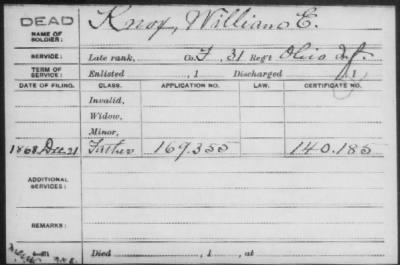 DEAD
NAME OF SOLDIER: Knox, William E.
SERVICE: Late rank, Co. F, 31 Reg't Ohio Inf.
TERM OF SERVICE: Enlisted , 1 Discharged , 1
DATE OF FILING. CLASS. APPLICATION NO. LAW. CERTIFICATE NO.
Invalid,
Widow,
Minor,
1868, Dec. 21 Father 169.355 140.185
ADDITIONAL SERVICES:
REMARKS:
Died , 1 , at